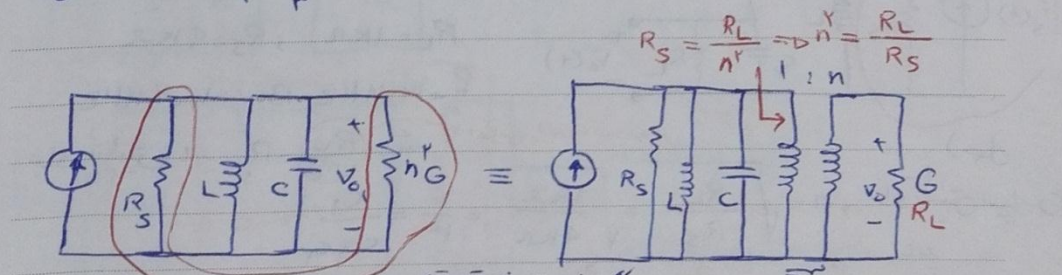 R_S = R_L / n^۲ ⇒ n^۲ = R_L / R_S
1 : n
R_S L C + V_o − n^۲G
≡
R_S L C + V_o − G
R_L